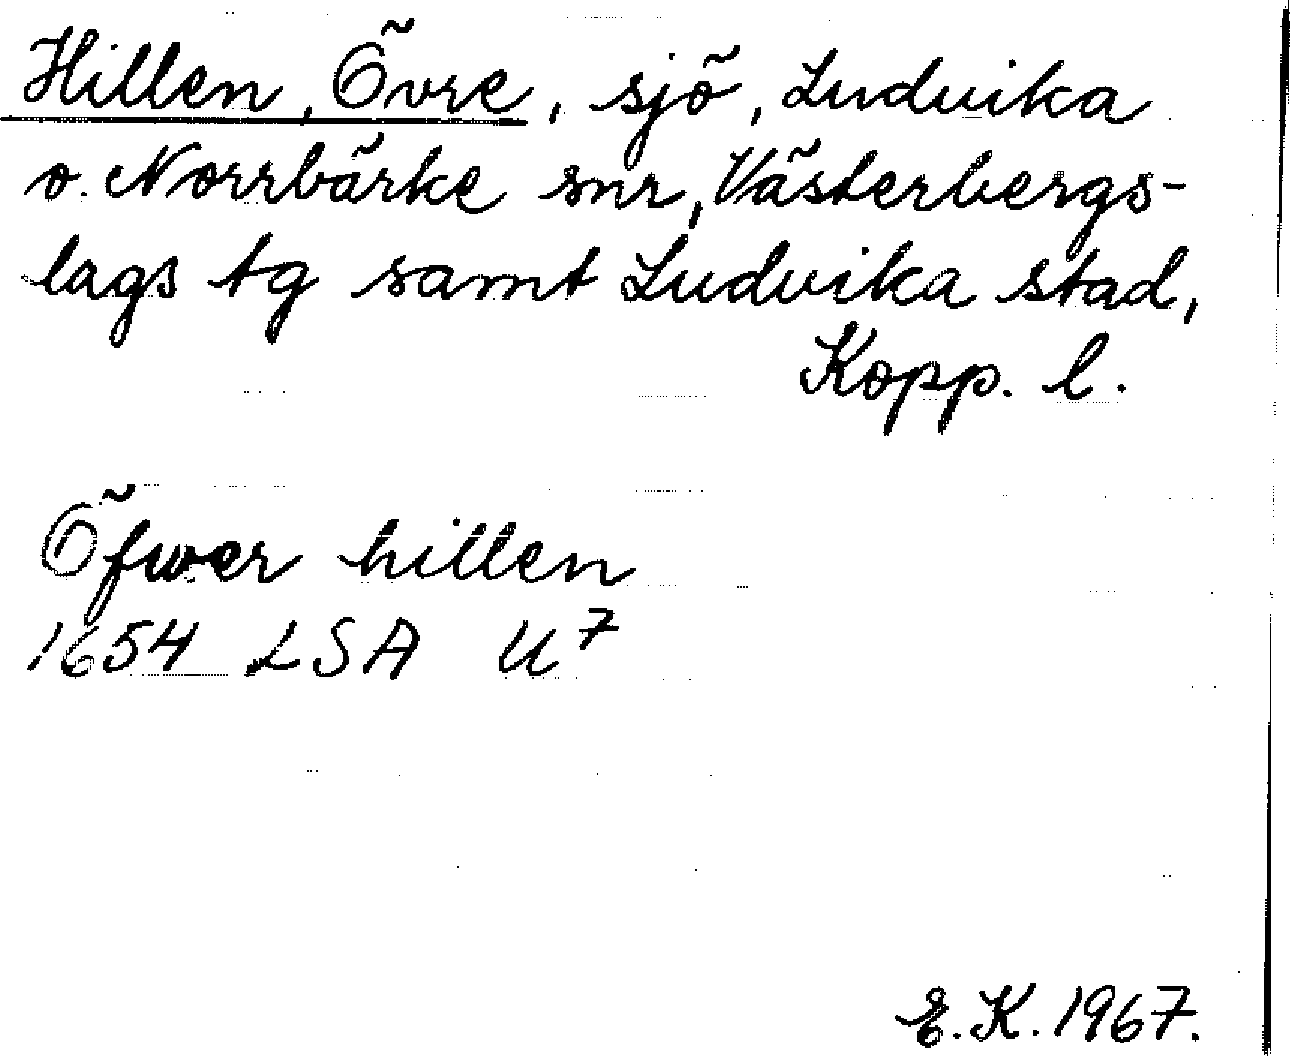 Hillen, Övre, sjö, Ludvika
o. Norrbärke snr, Västerbergs-
lags tg samt Ludvika stad,
Kopp. l.
Öfwer hillen
1654 LSA U⁷
E.K. 1967.